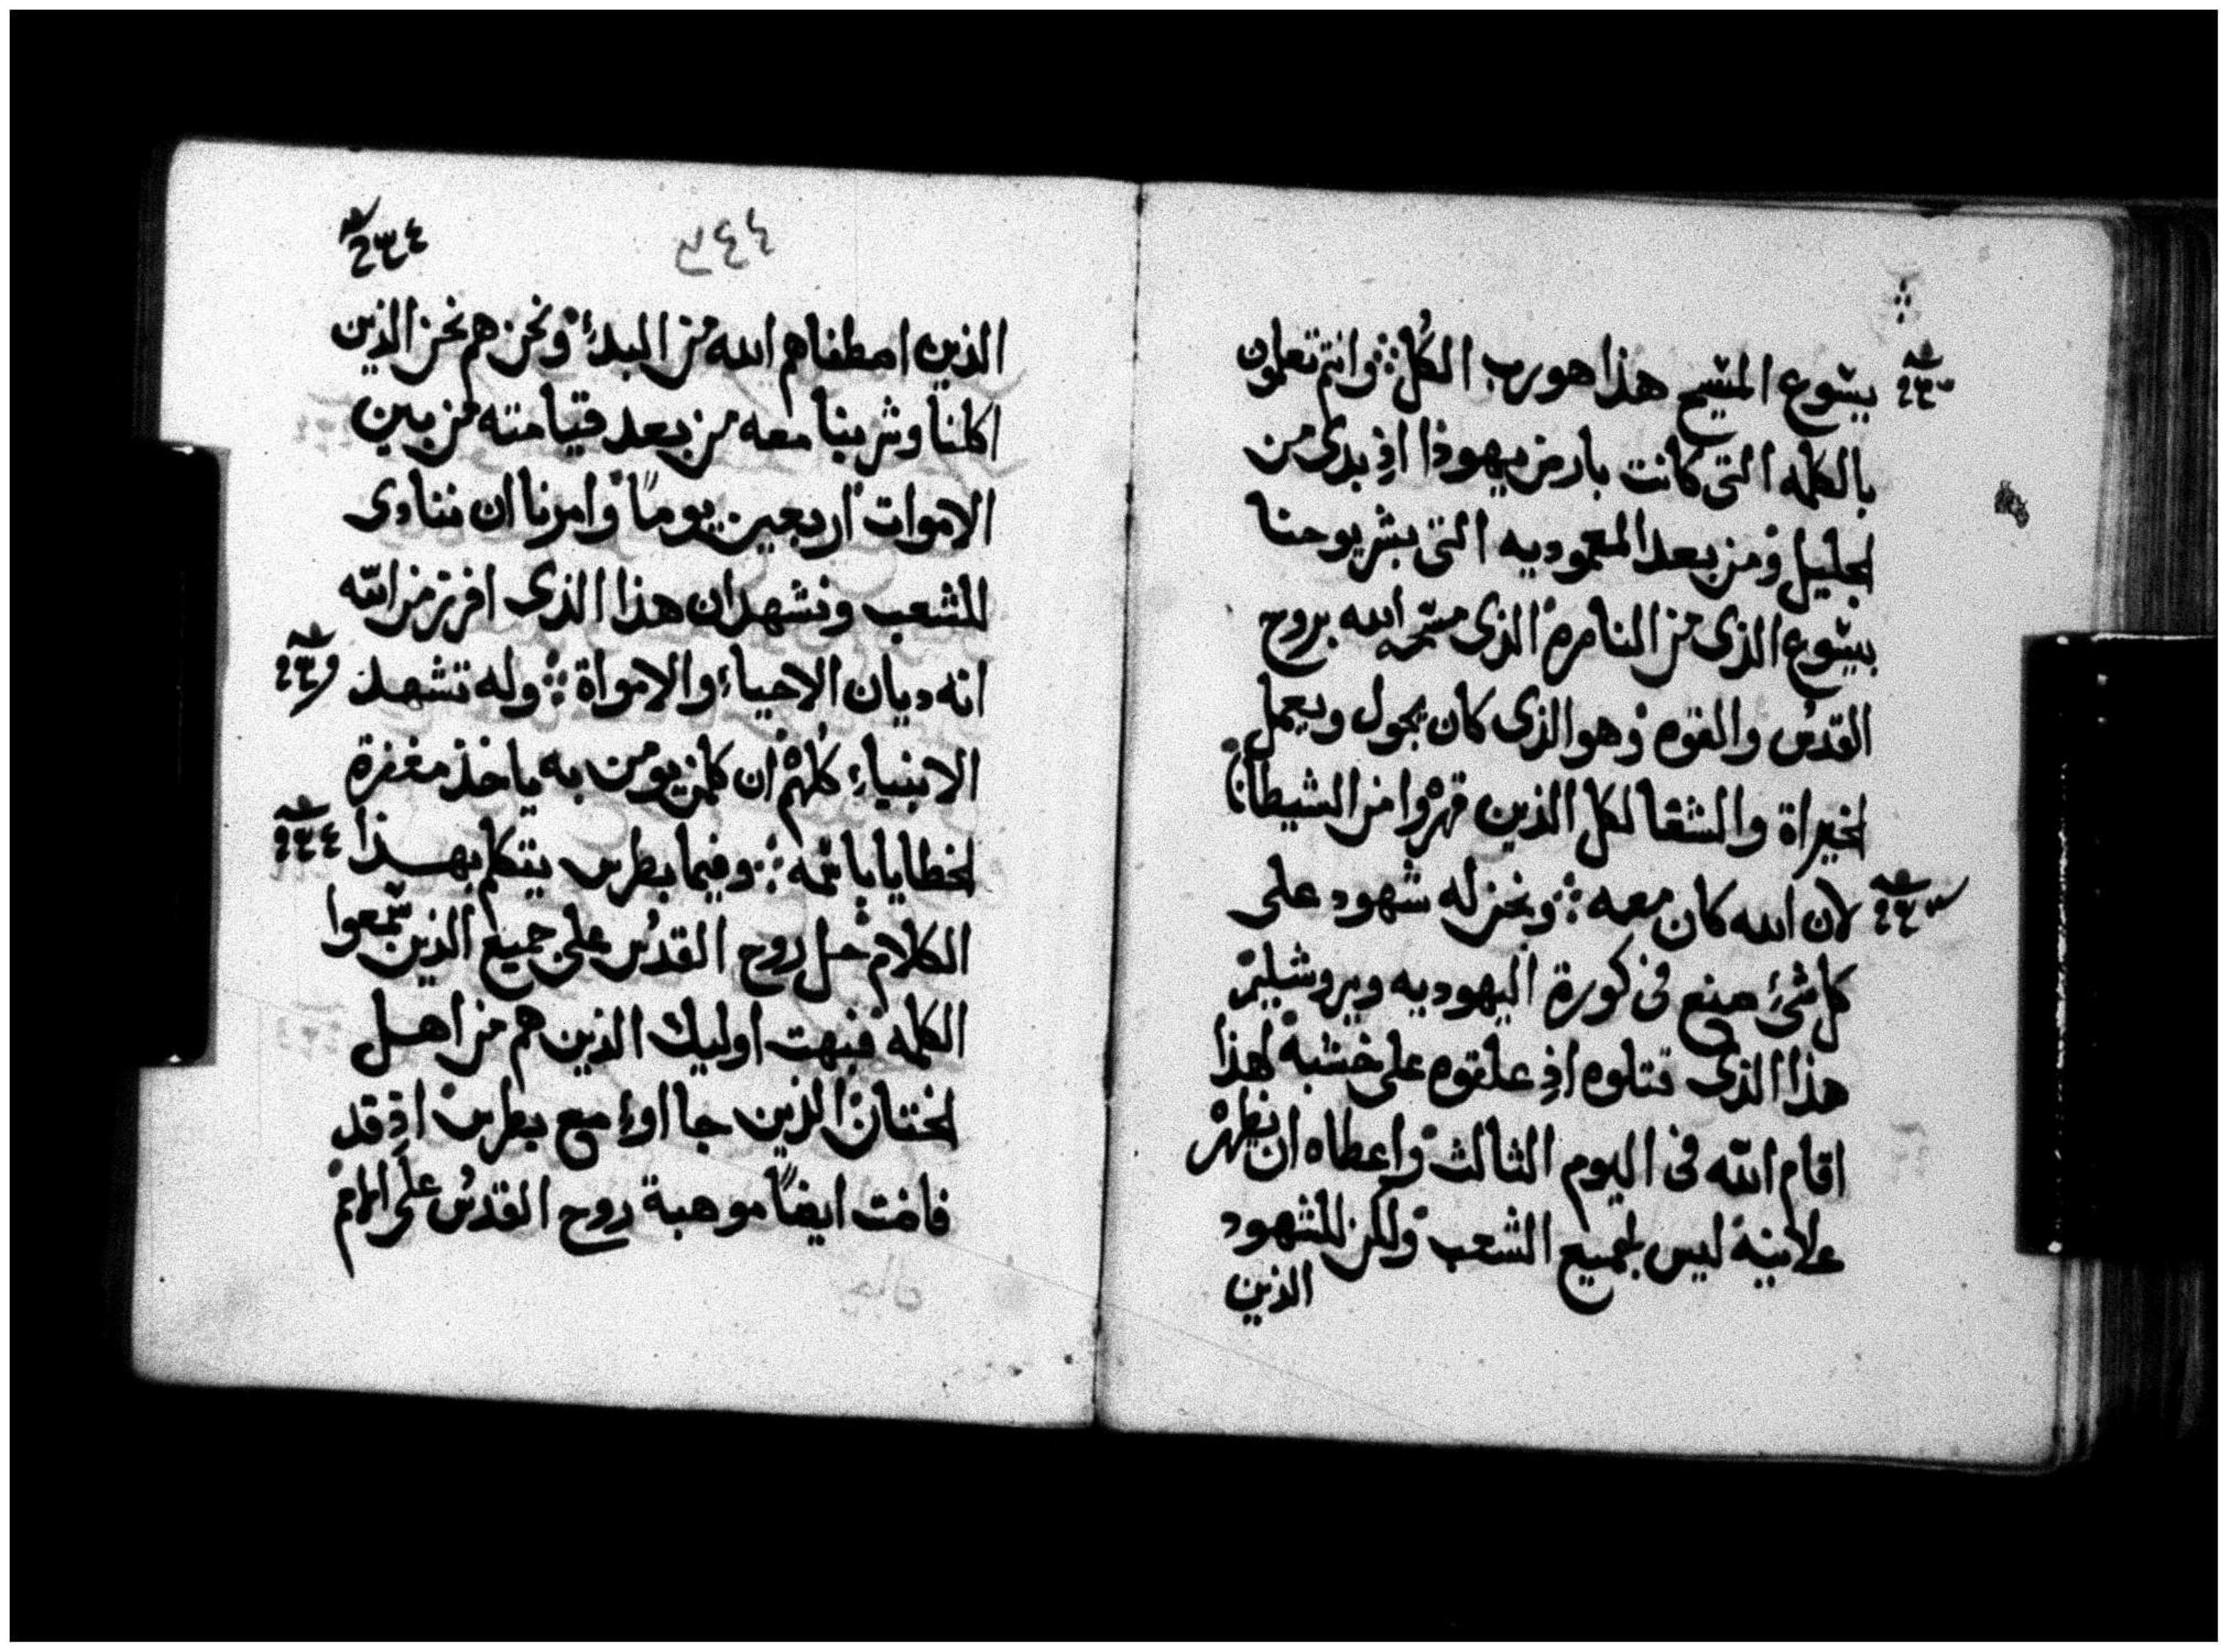 يسوع المسيح هذا هو رب الكل ܀ وانتم تعلمون
بالكلمه التى كانت بارض يهوذا اذ بدى من
الجليل ومن بعد المعموديه التى بشر يوحنا
يسوع الذى من الناصره الذى مسحه الله بروح
القدس والقوه وهو الذى كان يجول ويعمل
الخيراة والشفا لكل الذين قهروا من الشيطان
لان الله كان معه ܀ ونحن له شهود على
كل شئ صنع فى كورة اليهوديه ويروشليم
هذا الذى قتلوه اذ علقوه على خشبه لهذا
اقام الله فى اليوم الثالث واعطاه ان يظهر
علانيه ليس لجميع الشعب ولكن للشهود
الذين
الذين اصطفاهم الله من البدئ ونحن هم نحن الذين
اكلنا وشربنا معه من بعد قيامته من بين
الاموات اربعين يوماً وامرنا ان ننادى
للشعب ونشهد ان هذا الذى افرز من الله
انه ديان الاحياء والامواة ܀ وله تشهد
الانبياء كلهم ان كلمن يومن به ياخذ مغفرة
الخطايا باسمه ܀ وفيما بطرس يتكلم بهذا
الكلام حل روح القدس على جميع الذين سمعوا
الكلمه فبهت اوليك الذين هم من اهل
الختان الذين جااوا مع بطرس اذ قد
فاضت ايضاً موهبة روح القدس على الامم